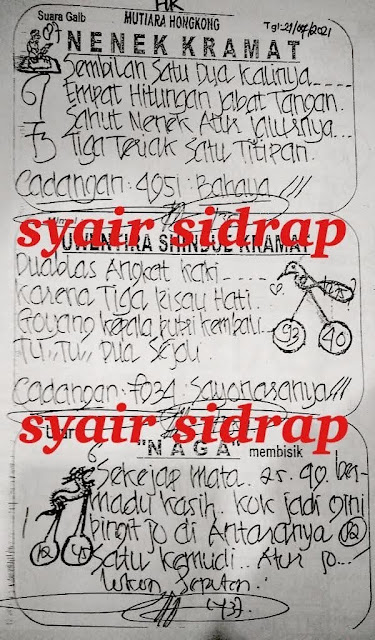 HK
Suara Gaib MUTIARA HONGKONG Tgl: 21/07/2021
NENEK KRAMAT
Sembilan Satu Dua Kalinya
Empat Hitungan Jabat Tangan.
Sahut Nenek Atur Jalusnya...
Tiga Teriak Satu Titipan.
Cadangan: 4951: Bahaya
syair sidrap
KRAMAT
Duablas Angkat kaki
Karena Tiga Risau Hati.
Goyang kepala putri kembali
Tu,, Tu,, Dua Sejoli.
93 40
Cadangan: 7034: Sayonaranya
syair sidrap
"NAGA" membisik
Sekejap mata.. 25. 90. ber-
madu kasih. kok jadi gini
pingit jo di Antaranya 02
12 45
Satu kemudi.. Atur jo...
(43).